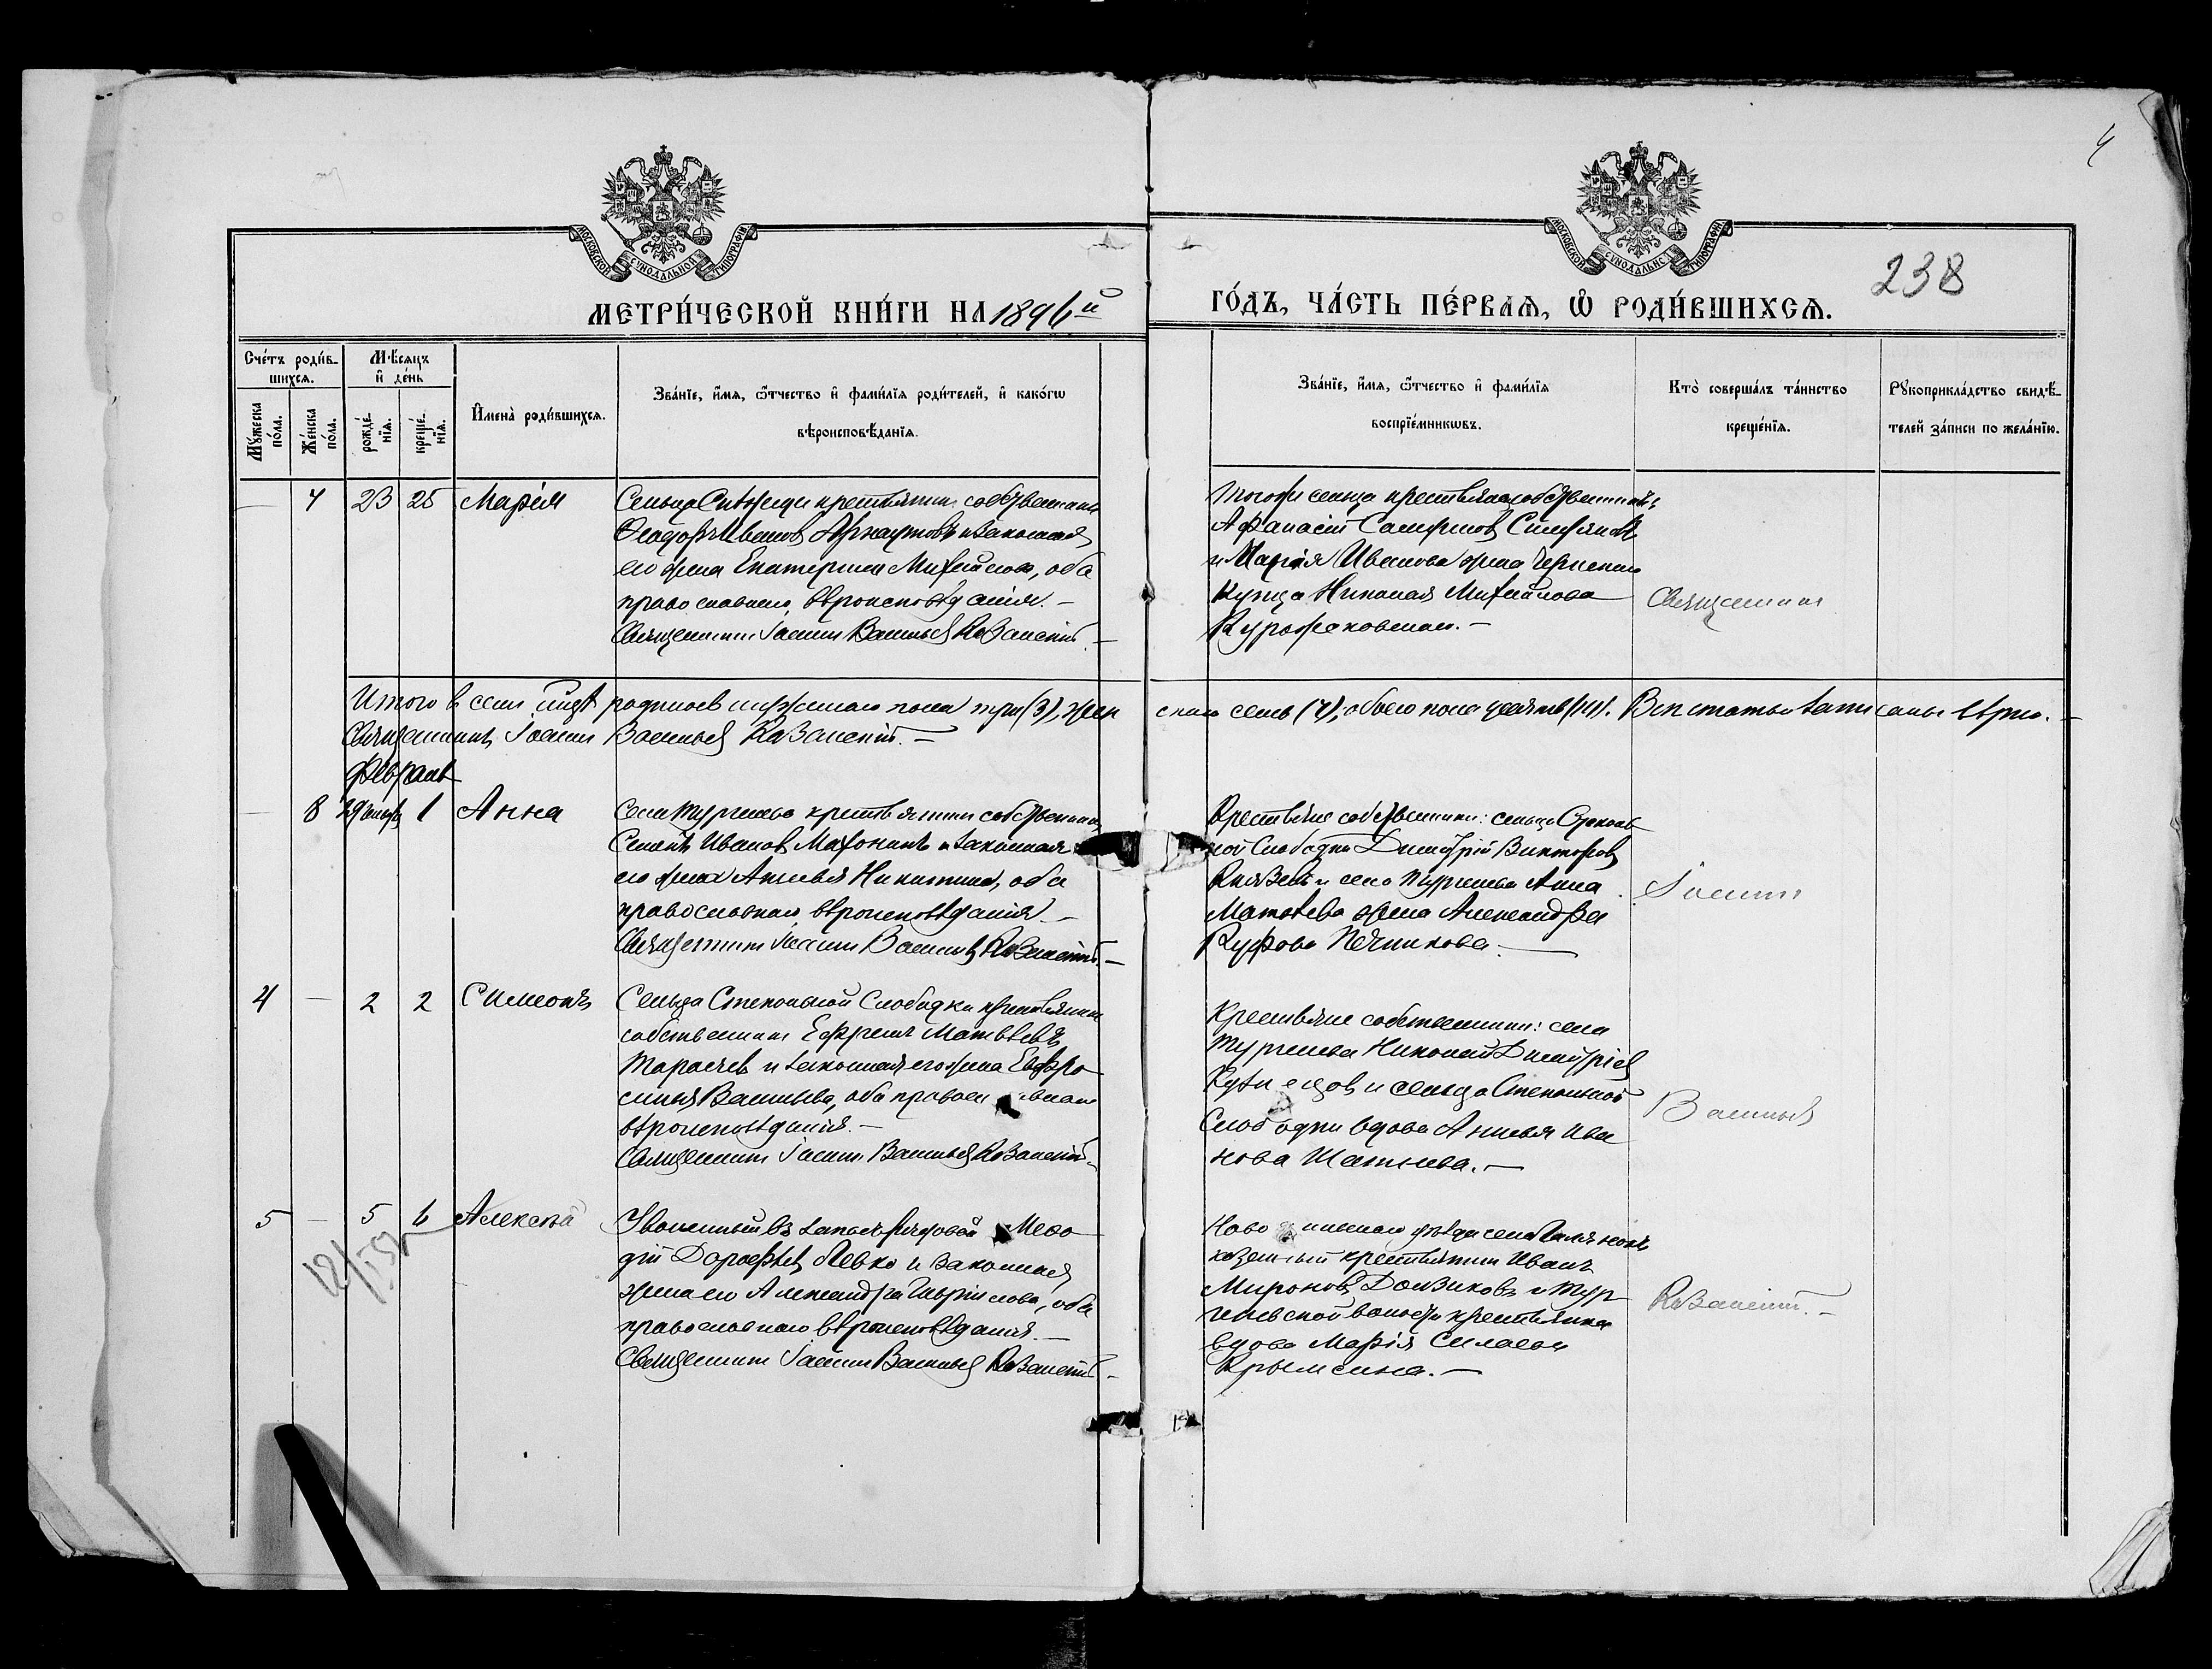 4
МОСКОВСКОЙ СУНОДАЛЬНОЙ ТИПОГРАФІИ
МОСКОВСКОЙ СУНОДАЛЬН ТИПОГРАФІИ
238
МЕТРИ́ЧЕСКОЙ КНИ́ГИ НА 1896й ГО́ДЪ, ЧА́СТЬ ПЕ́РВАѦ, Ѡ РОДИ́ВШИХСѦ.
Сче́тъ роди́в-
шихсѧ.
Мѣ́сяцъ
и де́нь
Му́жеска по́ла.
Же́нска по́ла.
рожде́-нїѧ.
креще́-нїѧ.
И҆мена̀ роди́вшихсѧ.
Зва́нїе, и҆́мѧ, ѻ҆́тчество и҆ фами́лїѧ роди́телей, и҆ како́гѡ
вѣроисповѣ́данїѧ.
Зва́нїе, и҆́мѧ, ѻ҆́тчество и҆ фами́лїѧ
воспрїе́мникѡвъ.
Кто̀ соверша́лъ та́инство
креще́нїѧ.
Рꙋкоприкла́дство свидѣ́-
телей за́писи по жела́нїю.
— 7 23 25 Марія
Сельца крестьянинъ собственникъ
Ѳеодоръ Ивановъ Арнаутовъ и законная
его жена Екатерина Михайлова, оба
православнаго вѣроисповѣданія. —
Священникъ Іоаннъ Васильевъ Казанскій. —
Тогоже сельца крестьянинъ собственникъ
Афанасій
и Марія Ивановна жена
Купца Николая Михайлова
Священникъ
Итого въ семъ родилось мужескаго пола три (3), жен
скаго семь (7), обоего пола десять (10). Всѣ статьи записаны вѣрно. —
Священникъ Іоаннъ Васильевъ Казанскій. —
Февраль
— 8 29 января 1 Анна
Села Тургенева крестьянинъ собственникъ
Семенъ Ивановъ Махонинъ и законная
его жена Анисья Никитина, оба
православнаго вѣроисповѣданія. —
Священникъ Іоаннъ Васильевъ Казанскій. —
Крестьяне собственники: сельца
ной Слободки Димитрій Викторовъ
Князевъ и села Тургенева Анна
Матвѣева жена Александра
Руфова Печникова. —
Іоаннъ
4 — 2 2 Симеонъ
Сельца Стекольной Слободки крестьянинъ
собственникъ Ефремъ Матвѣевъ
Тарасевъ и законная его жена Евфро
синья Васильева, оба православнаго
вѣроисповѣданія. —
Священникъ Іоаннъ Васильевъ Казанскій. —
Крестьяне собственники: села
Тургенева Николай Димитріевъ
и сельца Стекольной
Слободки вдова Анисья Ива
нова —
Васильевъ
5 — 5 6 Алексѣй
Уволенный въ запасъ рядовой Меѳо
дій Дорофѣевъ Левко и законная
жена его Александра Гаврилова, оба
православнаго вѣроисповѣданія. —
Священникъ Іоаннъ Васильевъ Казанскій. —
уѣзда села
казенный крестьянинъ Иванъ
Мироновъ Долзиковъ и Тур
геневской волости крестьянка
вдова Марія Силаева
Крымсина. —
Казанскій. —